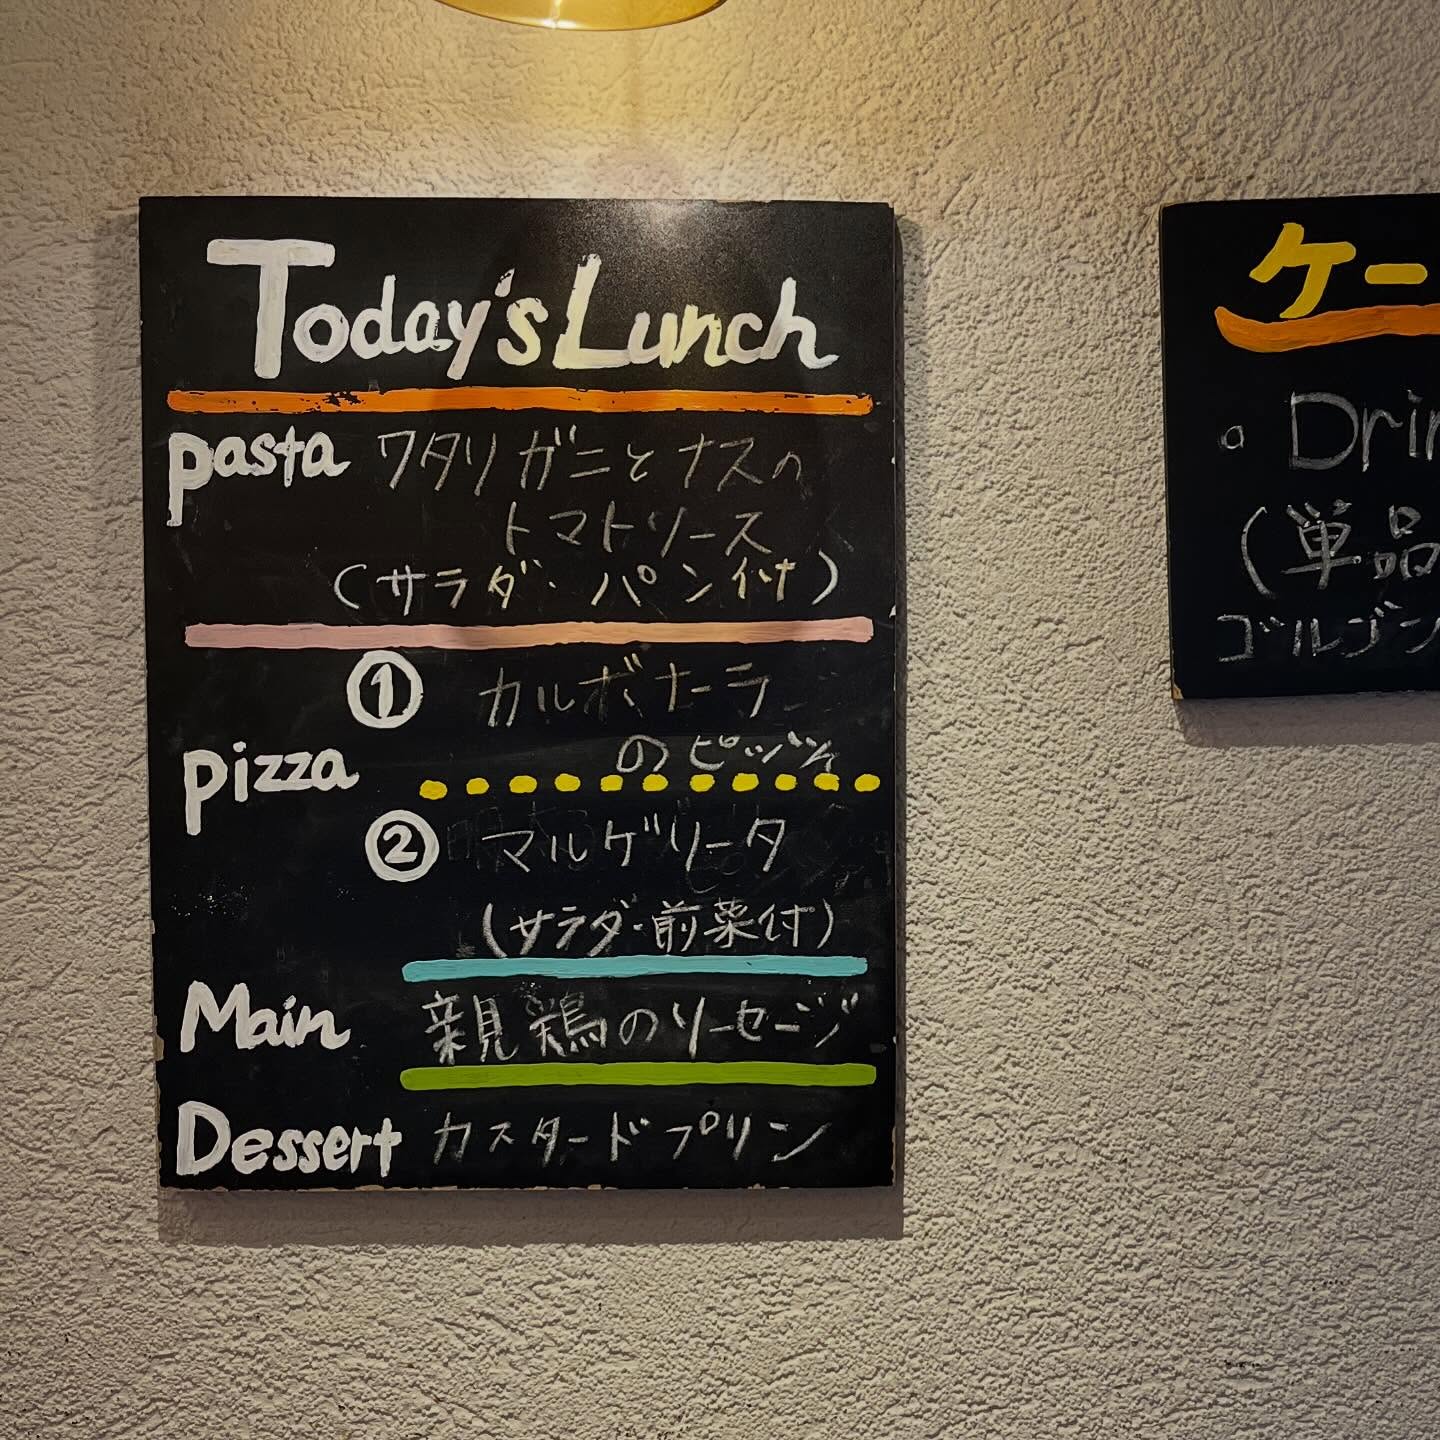 Today's Lunch
pasta ワタリガニとナスの
トマトソース
(サラダ・パン付)
① カルボナーラ
のピッツァ
pizza
② マルゲリータ
(サラダ・前菜付)
Main 親鶏のソーセージ
Dessert カスタードプリン
ケー
Drin
(単品
ゴルゴン